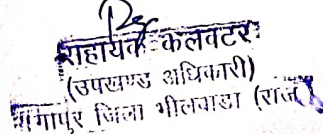 सहायक कलक्टर
(उपखण्ड अधिकारी)
गंगापुर जिला भीलवाडा (राज.)